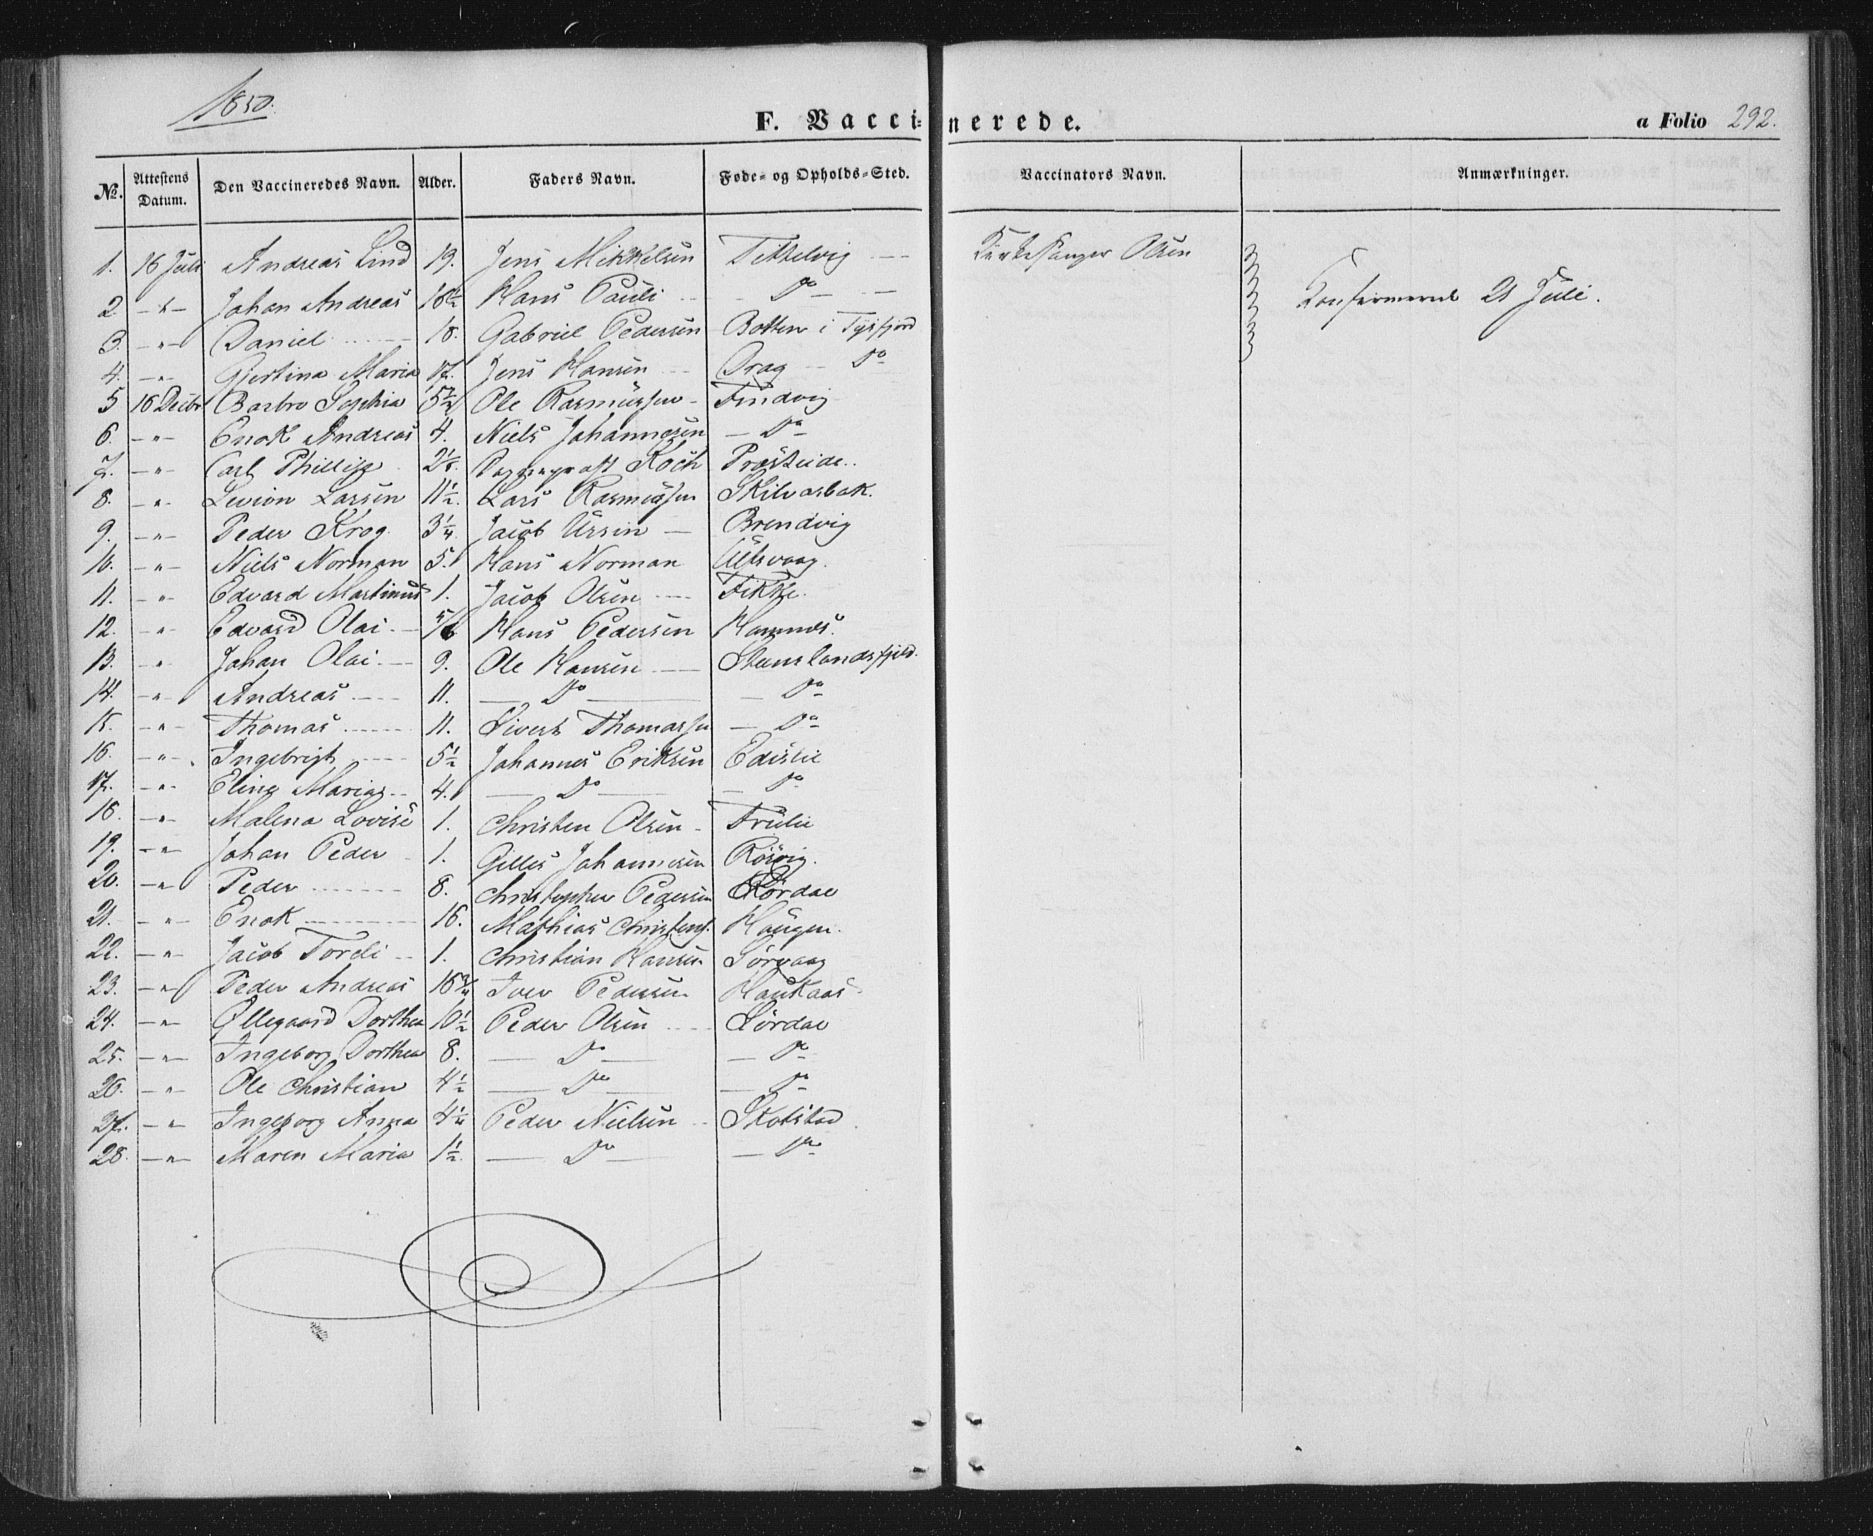 1850.
F. Vaccinerede.
a Folio 292.
№. Attestens Datum. Den Vaccineredes Navn. Alder. Faders Navn. Føde- og Opholds-Sted. Vaccinators Navn. Anmærkninger.
1. 16 Juli Andreas Lind 19. Jens Mikkelsen Tiltelvig Kirkesanger Olsen
2 -"- Johan Andreas 18½ Hans Pauli - Do - Konfirmerede 21 Juli.
3. -"- Daniel 18. Gabriel Pedersen Botten i Tysfjord
4. -"- Gjertina Maria 17. Jens Hansen Drag Do
5 16 Decbr Barbro Sophia Ole Rasmussen Findvig
6. -"- Enok Andreas 4. Niels Johannesen - Do -
7. -"- Carl Phillip Koch Præsteide.
8. -"- Larsen 11½. Lars Rasmussen Skilvasbak.
9. -"- Peder Krog 3¼. Jacob Ursin Brendvig
10. -"- Niels Norman 5. Hans Norman Ulsvaag.
11. -"- Edvard Martinus 1. Jacob Olsen Fikke.
12. -"- Edvard Olai 5/6 Hans Pedersen Hamnes.
13. -"- Johan Olai 9. Ole Hansen
14. -"- Andreas 11. - Do - - Do -
15. -"- Thomas 11. Sivert Thomassen - Do -
16. -"- Ingebrigt 5½ Johannes Eriksen
17. -"- 4. - Do - - Do -
18. -"- Malena Lovise 1. Christen Olsen
19. -"- Johan Peder 1. Gilles Johannesen Rösvig.
20. -"- Peder 8. Christopher Pedersen
21. -"- Enok 16. Mathias Christens. Haugen.
22. -"- Jacob 1. Christian Hansen Sörvaag
23. -"- Peder Andreas 16¾ Iver Pedersen Haukaas
24. -"- Øllegaard Dorthea 10½ Peder Olsen Sördal
25. -"- Ingeborg Dorthea 8. - Do - - Do -
26. -"- Ole Christian 4½ - Do - - Do -
27. -"- Ingeborg Anna 4¼ Peder Nielsen Skotstad
28. -"- Maren Maria 1½. - Do - - Do -